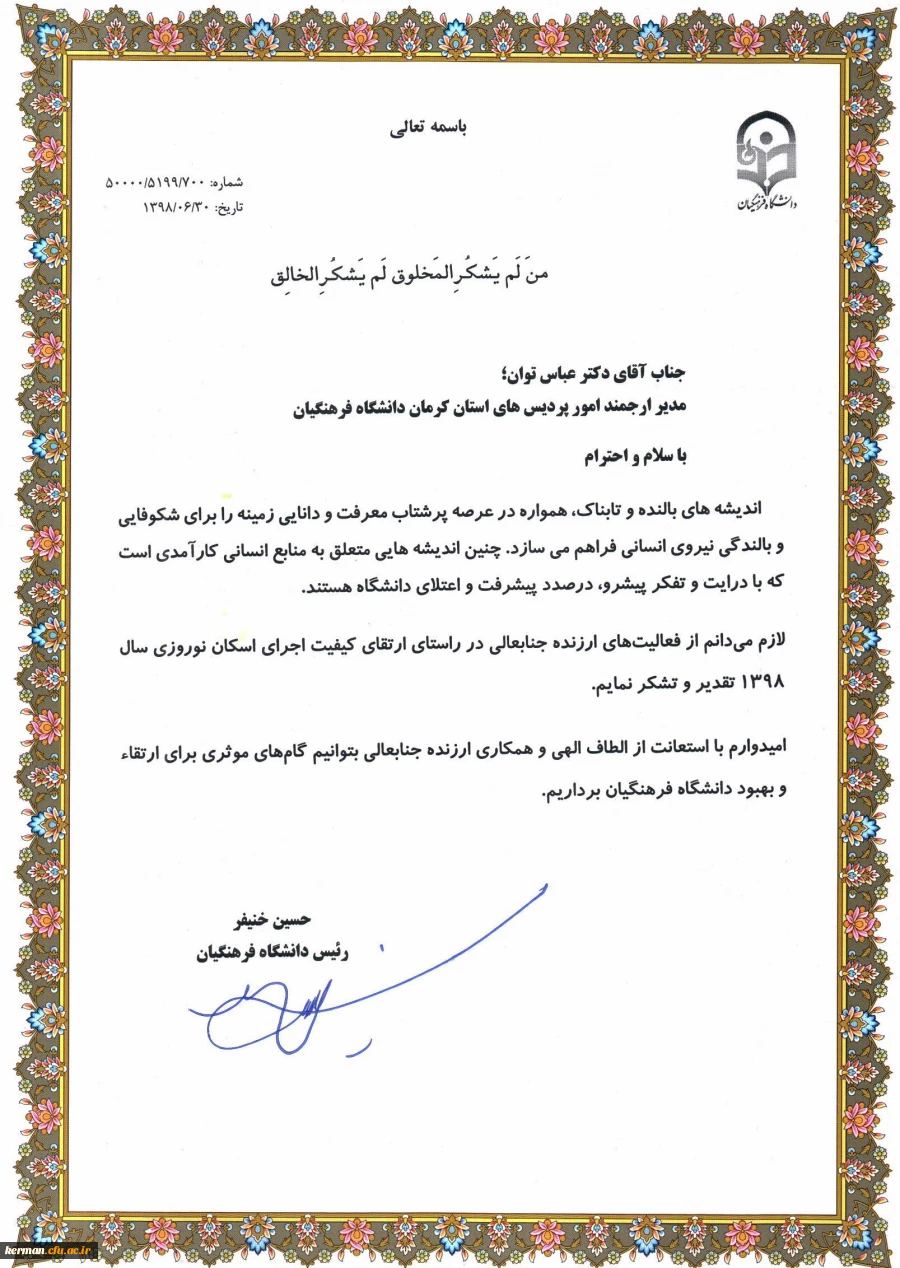 باسمه تعالی
دانشگاه فرهنگیان
شماره: ۵۰۰۰۰/۵۱۹۹/۷۰۰
تاریخ: ۱۳۹۸/۰۶/۳۰
منَ لَم یَشکُرِالمَخلوق لَم یَشکُرِالخالِق
جناب آقای دکتر عباس توان؛
مدیر ارجمند امور پردیس های استان کرمان دانشگاه فرهنگیان
با سلام و احترام
اندیشه های بالنده و تابناک، همواره در عرصه پرشتاب معرفت و دانایی زمینه را برای شکوفایی
و بالندگی نیروی انسانی فراهم می سازد. چنین اندیشه هایی متعلق به منابع انسانی کارآمدی است
که با درایت و تفکر پیشرو، درصدد پیشرفت و اعتلای دانشگاه هستند.
لازم می‌دانم از فعالیت‌های ارزنده جنابعالی در راستای ارتقای کیفیت اجرای اسکان نوروزی سال
۱۳۹۸ تقدیر و تشکر نمایم.
امیدوارم با استعانت از الطاف الهی و همکاری ارزنده جنابعالی بتوانیم گام‌های موثری برای ارتقاء
و بهبود دانشگاه فرهنگیان برداریم.
حسین خنیفر
رئیس دانشگاه فرهنگیان
kerman.cfu.ac.ir